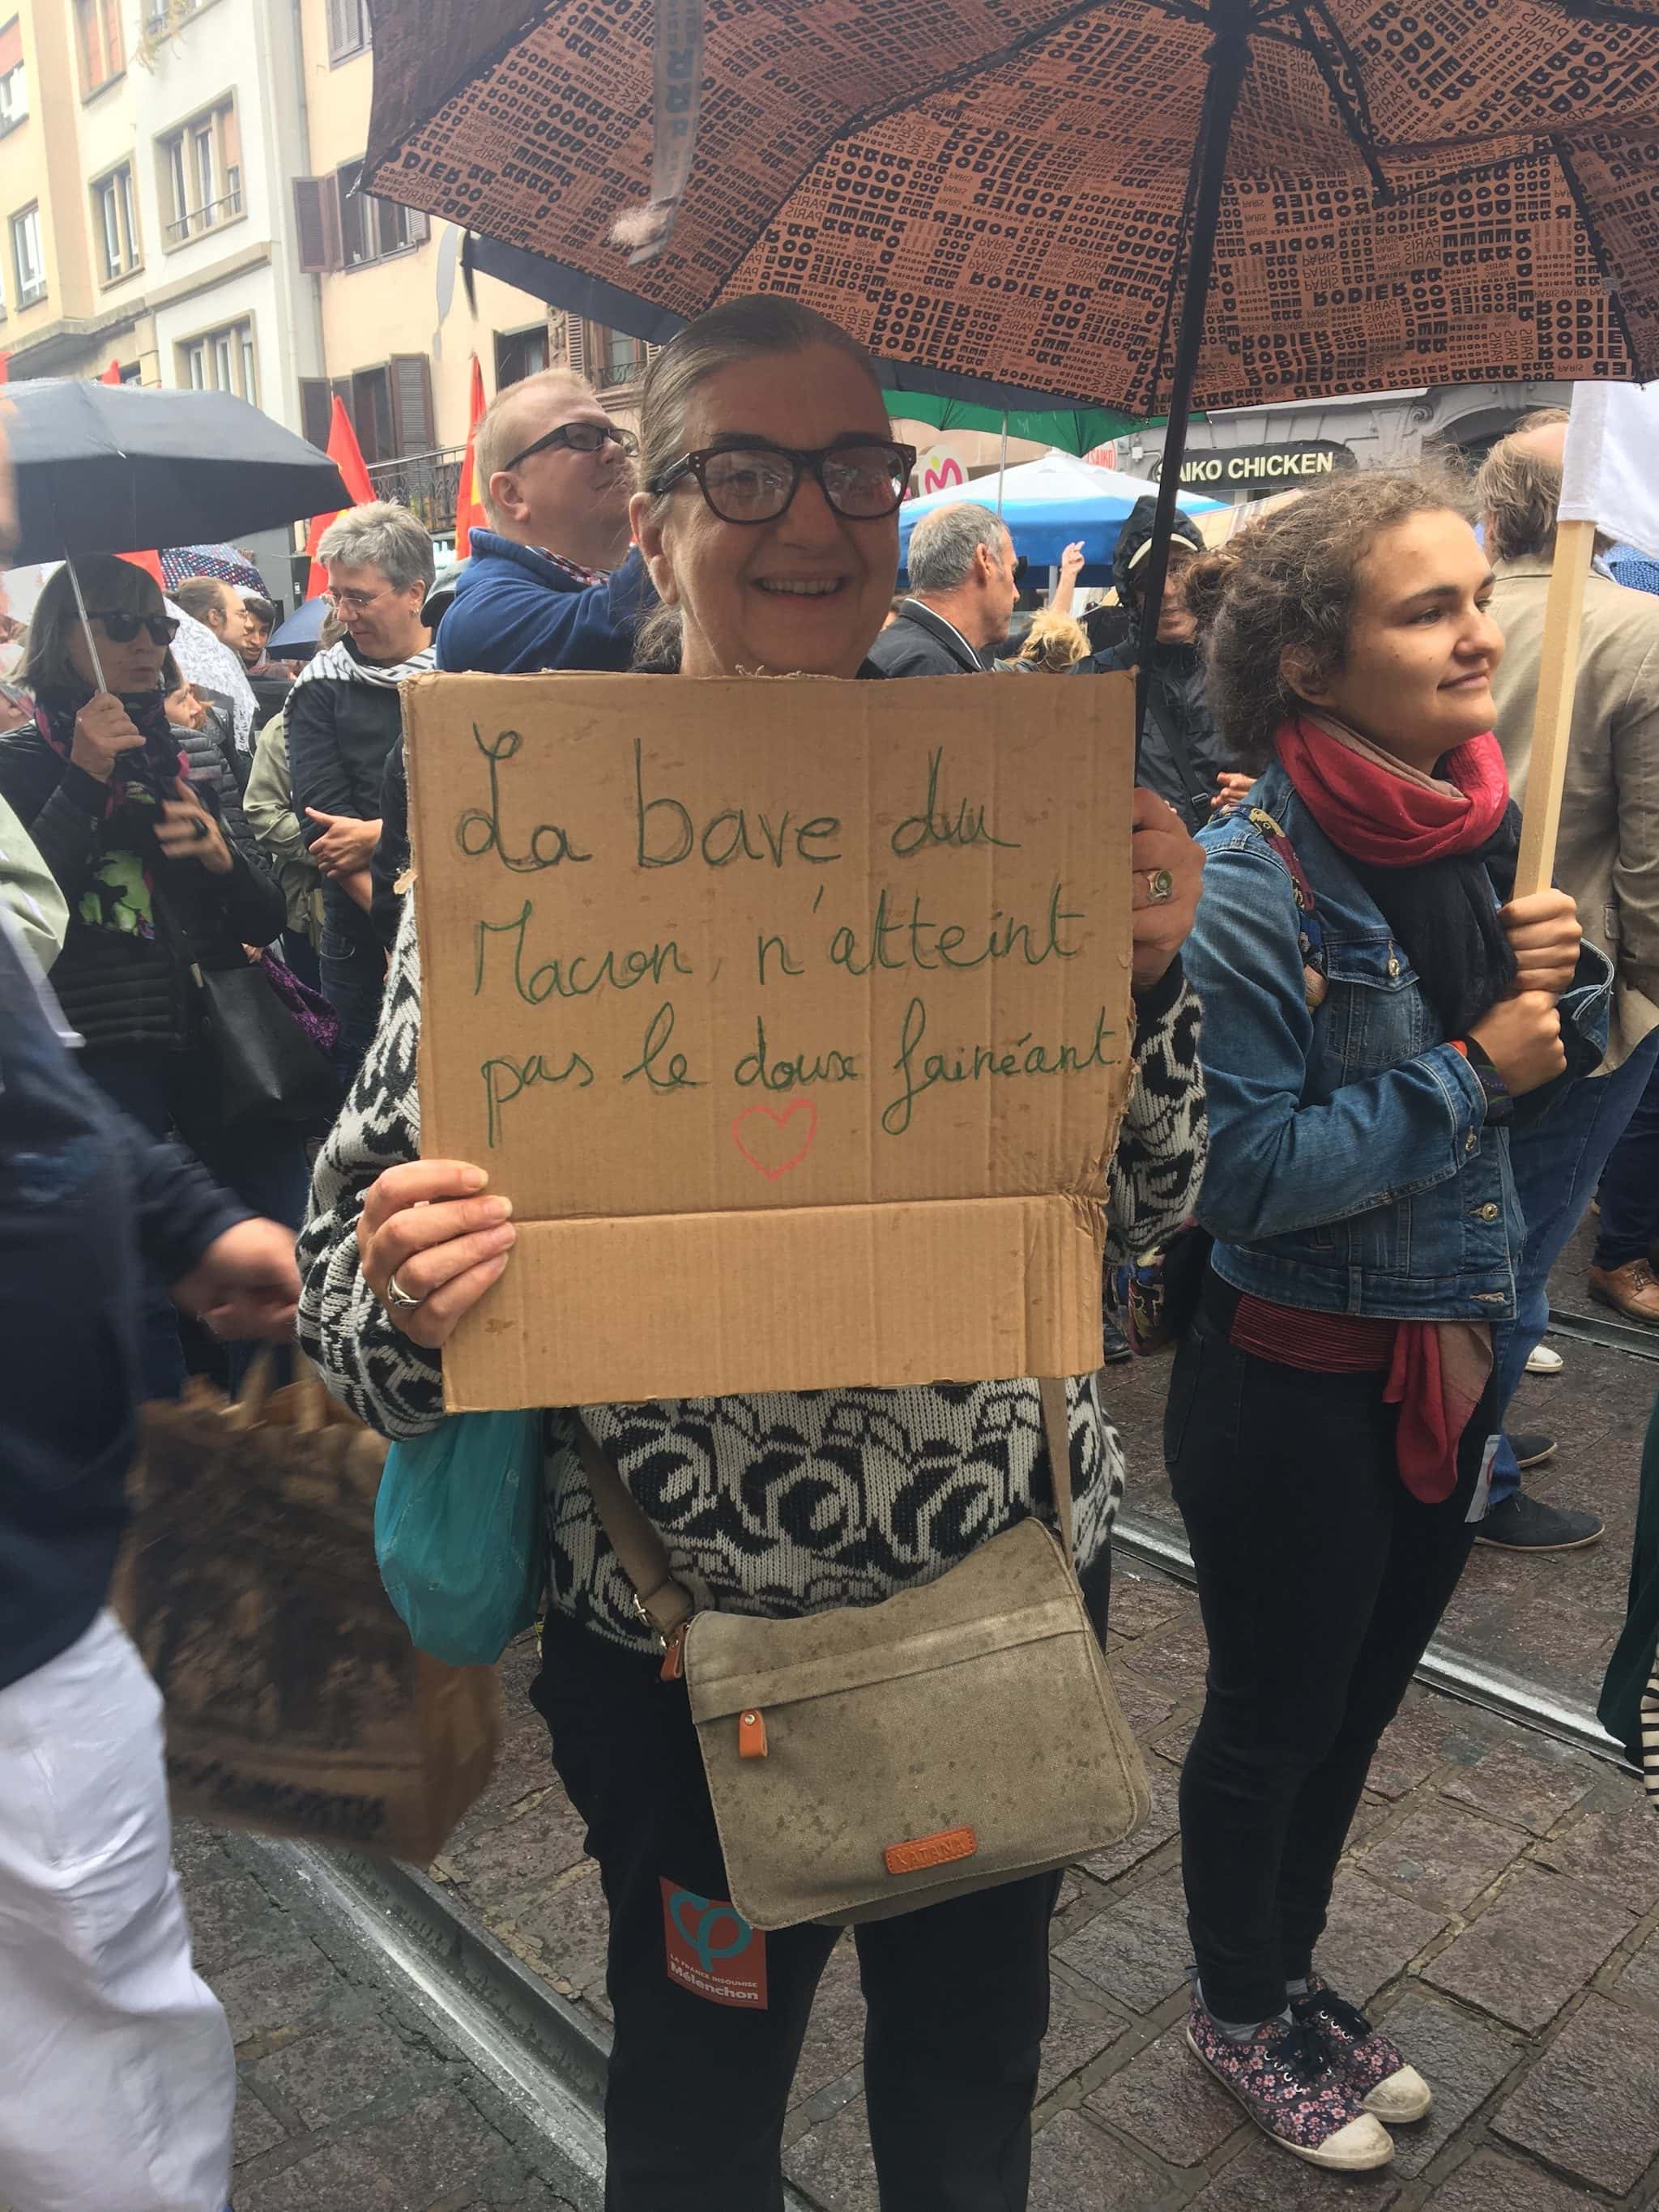 La bave du
Macron, n'atteint
pas le doux fainéant.
SAIKO CHICKEN
RODIER
PARIS
KATANA
LA FRANCE INSOUMISE
Mélenchon